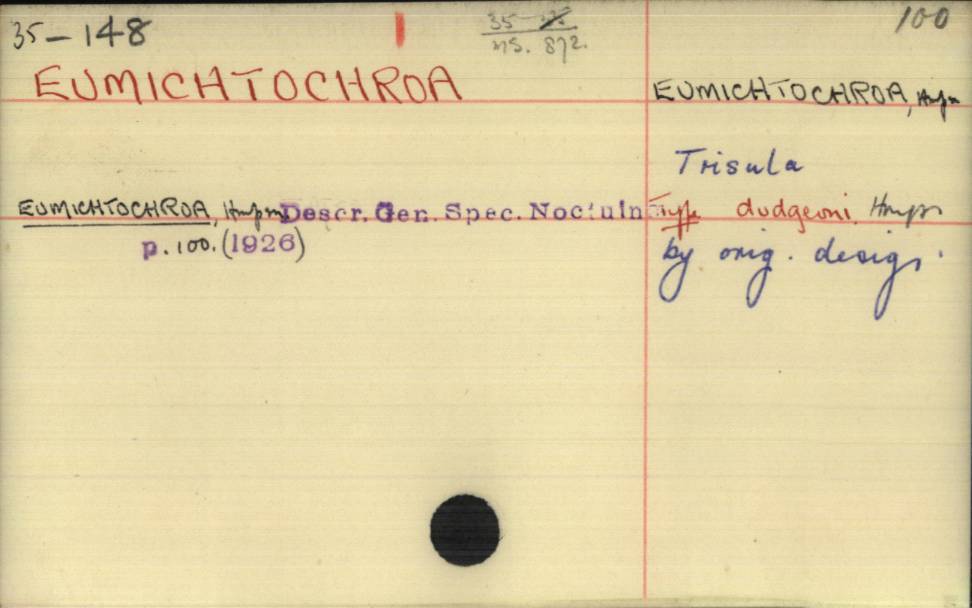 35-148
35-
ms. 872.
100
EUMICHTOCHROA
EUMICHTOCHROA, Hmpsn
Trisula
EUMICHTOCHROA, Hmpsn Descr. Gen. Spec. Noctuin
p. 100. (1926)
Type dudgeoni Hmpsn
by orig. desig.